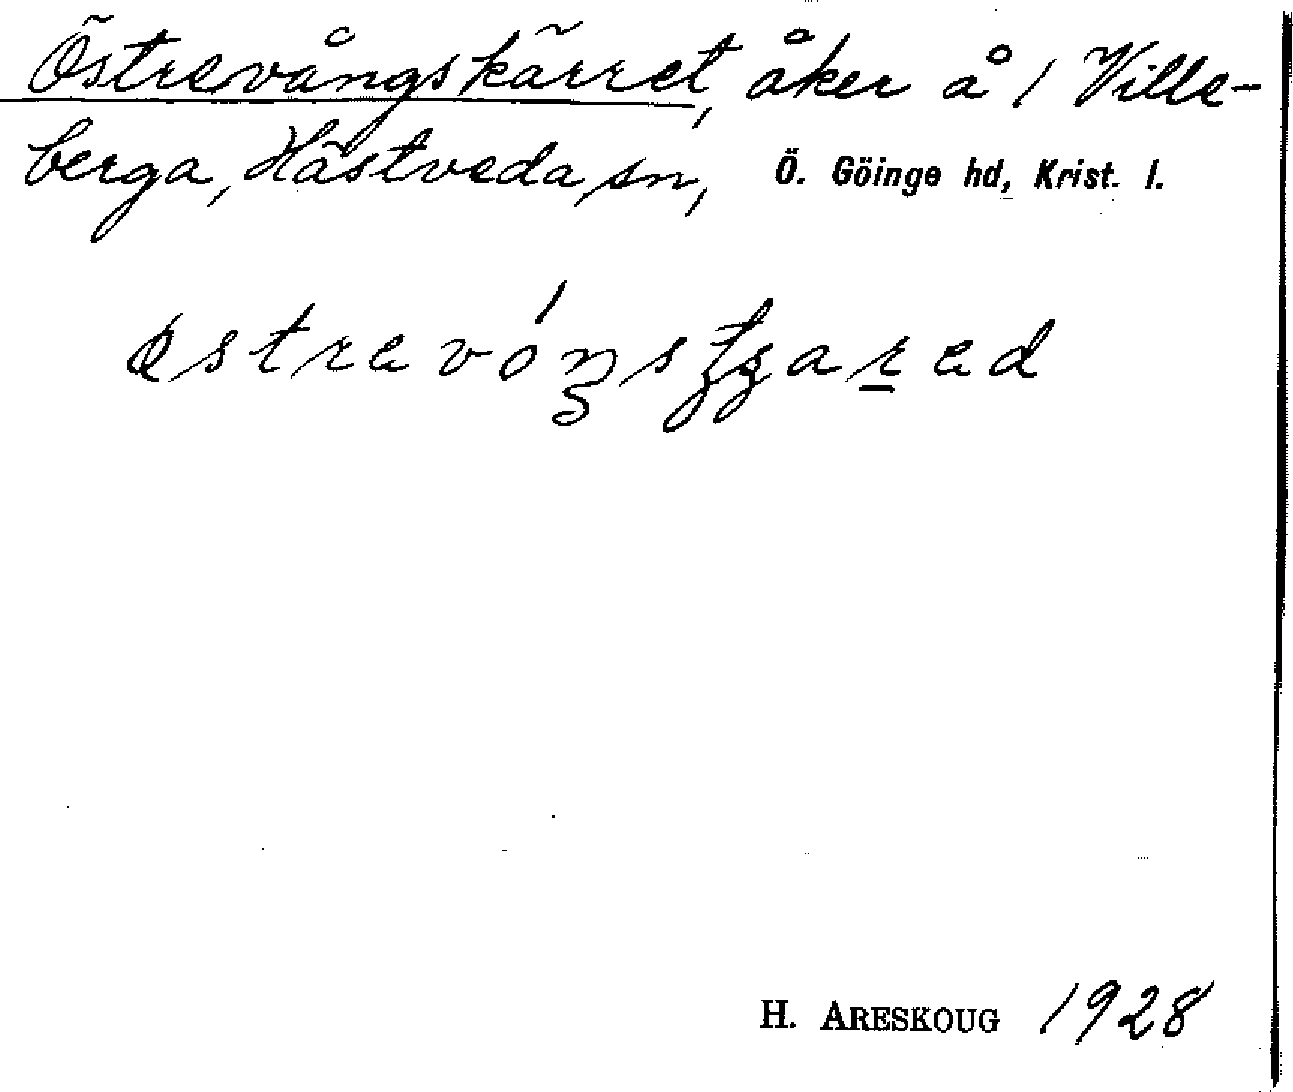 Östrevångskärret, åker å 1 Ville-
berga, Hästveda sn, Ö. Göinge hd, Krist. l.
H. ARESKOUG 1928